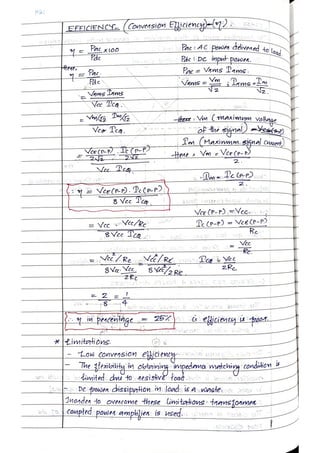 EFFICIENCY (Conversion Efficiency)-(η) :
η = Pac x100 Pac : AC power delivered to load
Pdc Pdc : DC input power.
Here,
η = Pac Pac = Vrms Irms.
Pdc Vrms = Vm ; Irms = Im
√2 √2
= Vrms Irms
Vcc ICQ
= Vm/√2 Im/√2 Vm (maximum voltage
Vcc ICQ of the signal)
Im (Maximum signal current)
= Vce(P-P) . Ic(P-P) Here, Vm = Vce(P-P)
2√2 2√2 2
Vcc ICQ
Im = Ic(P-P)
2
∴ η = Vce(P-P) . Ic(P-P)
8 Vcc ICQ
Vce(P-P) = Vcc
= Vcc . Vcc/Rc Ic(P-P) = Vce(P-P)
8 Vcc ICQ Rc
= Vcc
Rc
= Vcc²/Rc = Vcc²/Rc ICQ = Vcc
8Vcc . Vcc 8 Vcc²/2Rc 2Rc
2Rc
= 2 = 1
8 4
∴ η in percentage = 25% ∴ efficiency is poor.
* Limitations
- Low conversion efficiency
- The flexibility in obtaining impedance matching condition is
limited due to resistive load
- DC power dissipation in load is a waste.
Inorder to overcome these limitations transformer
coupled power amplifier is used.